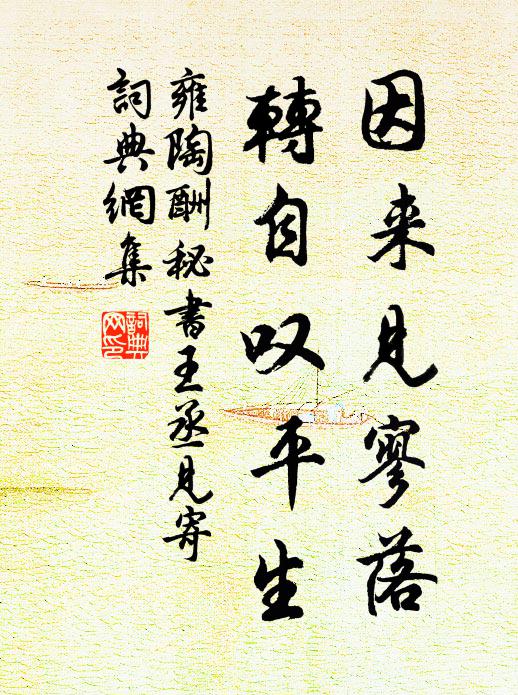 因来見寥落
轉自叹平生
雍陶酬秘書王丞見寄
詞典網集
詞典网印